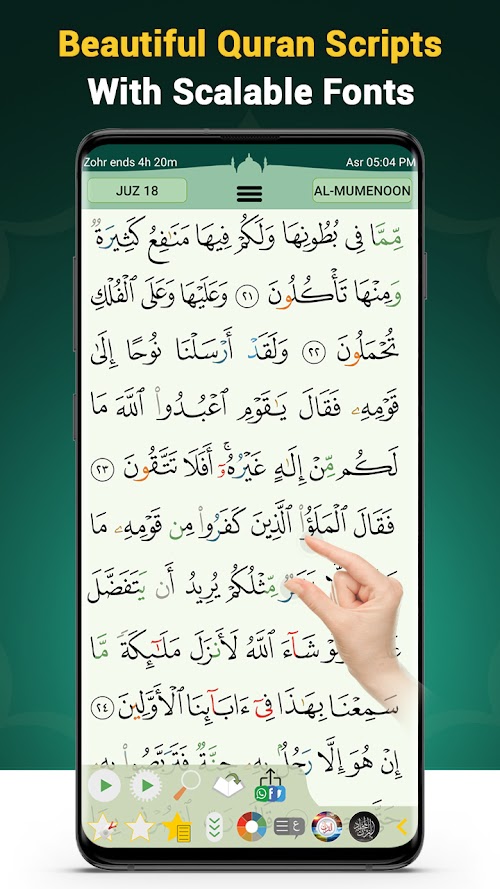 Beautiful Quran Scripts
With Scalable Fonts
Zohr ends 4h 20m
Asr 05:04 PM
JUZ 18
AL-MUMENOON
مِّمَّا فِي بُطُونِهَا وَلَكُمْ فِيهَا مَنَـٰفِعُ كَثِيرَةٌ
وَمِنْهَا تَأْكُلُونَ ٢١ وَعَلَيْهَا وَعَلَى ٱلْفُلْكِ
تُحْمَلُونَ ٢٢ وَلَقَدْ أَرْسَلْنَا نُوحًا إِلَىٰ
قَوْمِهِۦ فَقَالَ يَـٰقَوْمِ ٱعْبُدُوا۟ ٱللَّهَ مَا
لَكُم مِّنْ إِلَـٰهٍ غَيْرُهُۥٓ ۚ أَفَلَا تَتَّقُونَ ٢٣
فَقَالَ ٱلْمَلَؤُا۟ ٱلَّذِينَ كَفَرُوا۟ مِن قَوْمِهِۦ مَا
مِّثْلُكُمْ يُرِيدُ أَن يَتَفَضَّلَ
شَآءَ ٱللَّهُ لَأَنزَلَ مَلَـٰٓئِكَةً مَّا
سَمِعْنَا بِهَـٰذَا فِىٓ ءَابَآئِنَا ٱلْأَوَّلِينَ ٢٤
إِنْ هُوَ إِلَّا رَجُلٌۢ بِهِۦ جِنَّةٌ فَتَرَبَّصُوا۟ بِهِۦ